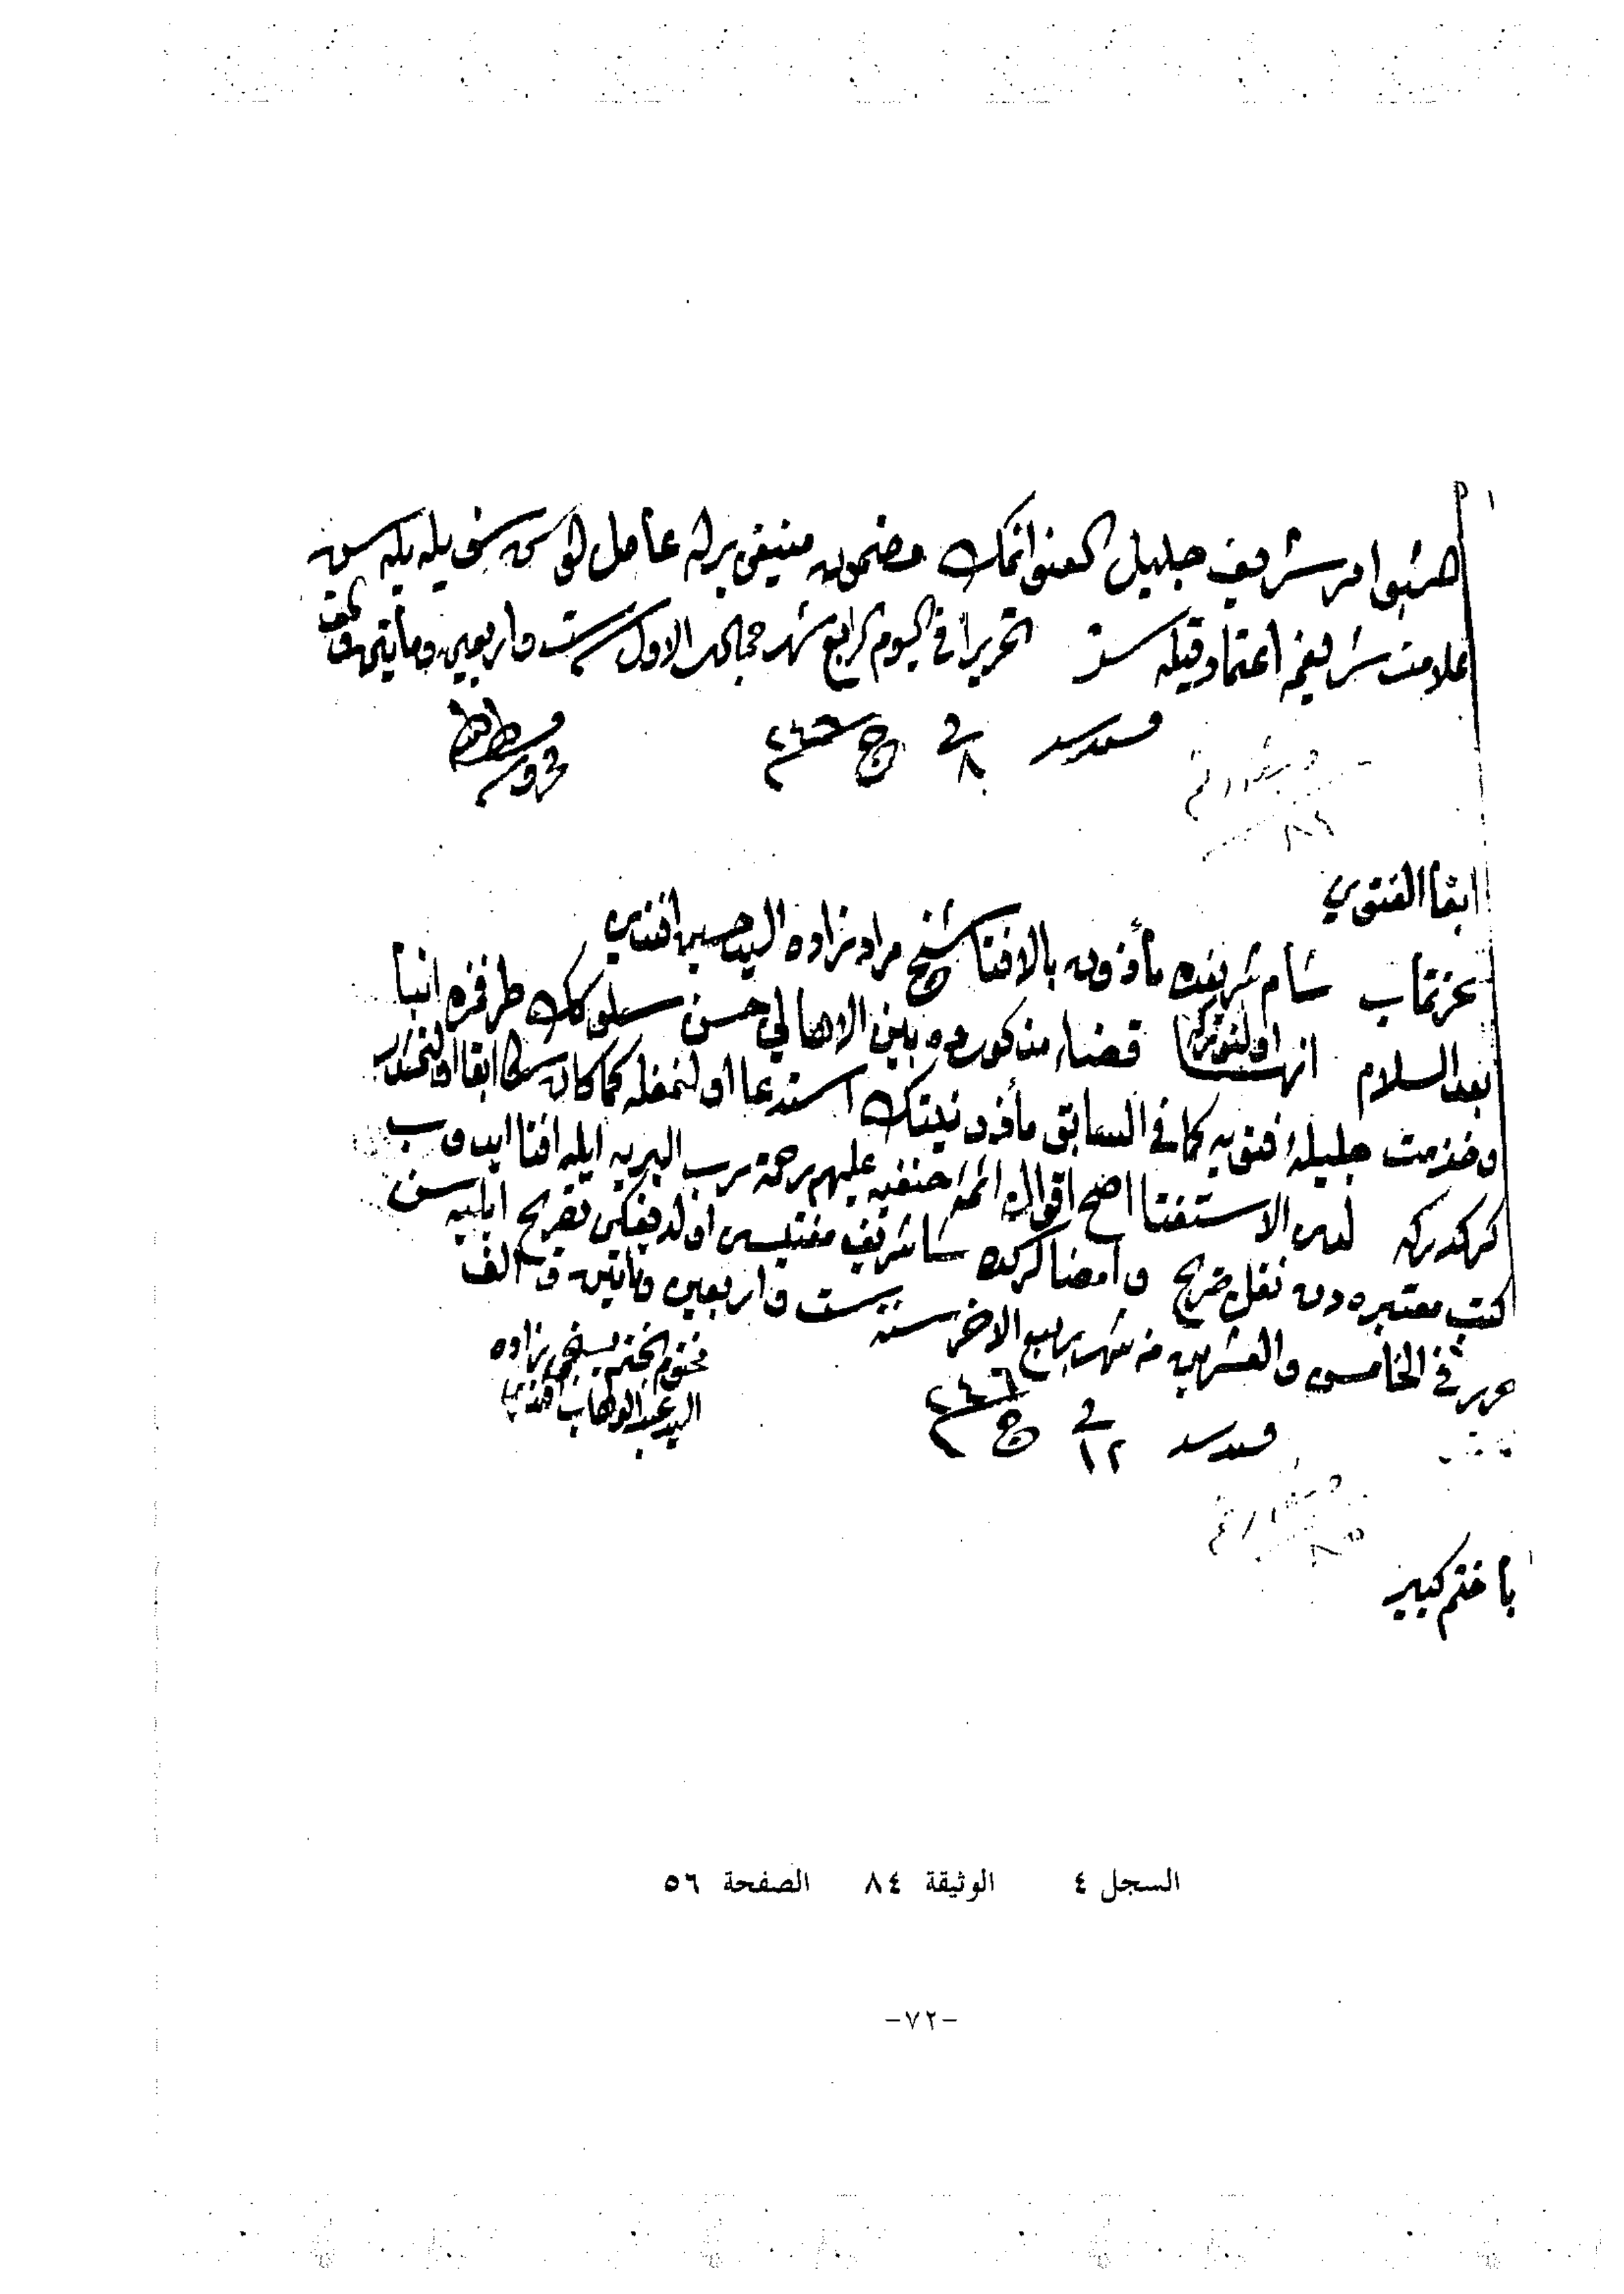 امر شريف جليل العنوانمك مضمون منيفى برله عامل شويله بيله سن
علامت شريفه اعتماد قيله سز تحريرا في اليوم الرابع شهر جمادى الاول سنة ست واربعين ومأيتين والف
في ٨ ج ٢٤٦
ابقا الفتوي
عزتمآب شام شريفده مأذون بالافتا شيخ مراد زاده السيد حسين افندي
بعد السلام انها اولنوركه قضاء مذكورده بين الاهالي حسن سلوكك طرفمزه انبأ
وخدمت جليلۀ فتويه كما في السابق مأذونيتك استدعا اولنمغله كما كان سكا ابقا اولنمشدر
كركدركه لدى الاستفتا اصح اقوال ائمۀ حنفيه عليهم رحمة رب البريه ايله افتا ايدوب
كتب معتبره دن نقل صريح وامضا كركده شام شريف مفتيسى اولديغكى تصريح ايليه سن
حرر في الخامس والعشرين من شهر ربيع الاخر سنة ست واربعين ومايتين والف
السيد عبد الوهاب افندي
في ١٢ ج ٢٤٦
با ختم كبير
السجل ٤ الوثيقة ٨٤ الصفحة ٥٦
-٧٢-